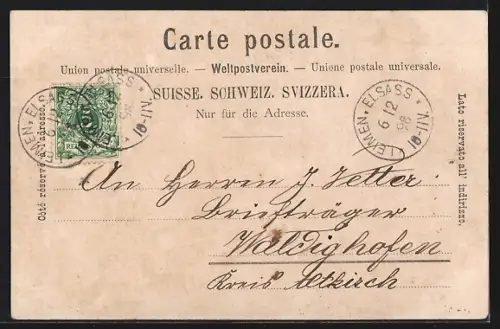 Carte postale.
Union postale universelle. — Weltpostverein. — Unione postale universale.
SUISSE. SCHWEIZ. SVIZZERA.
Nur für die Adresse.
Côté réservé à l'adresse.
Lato riservato all' indirizzo.
LEYMEN, ELSASS
6/12
98
LEYMEN, ELSASS
6/12
98
An Herrn J. Vetter
Briefträger
Waldighofen
Kreis Altkirch